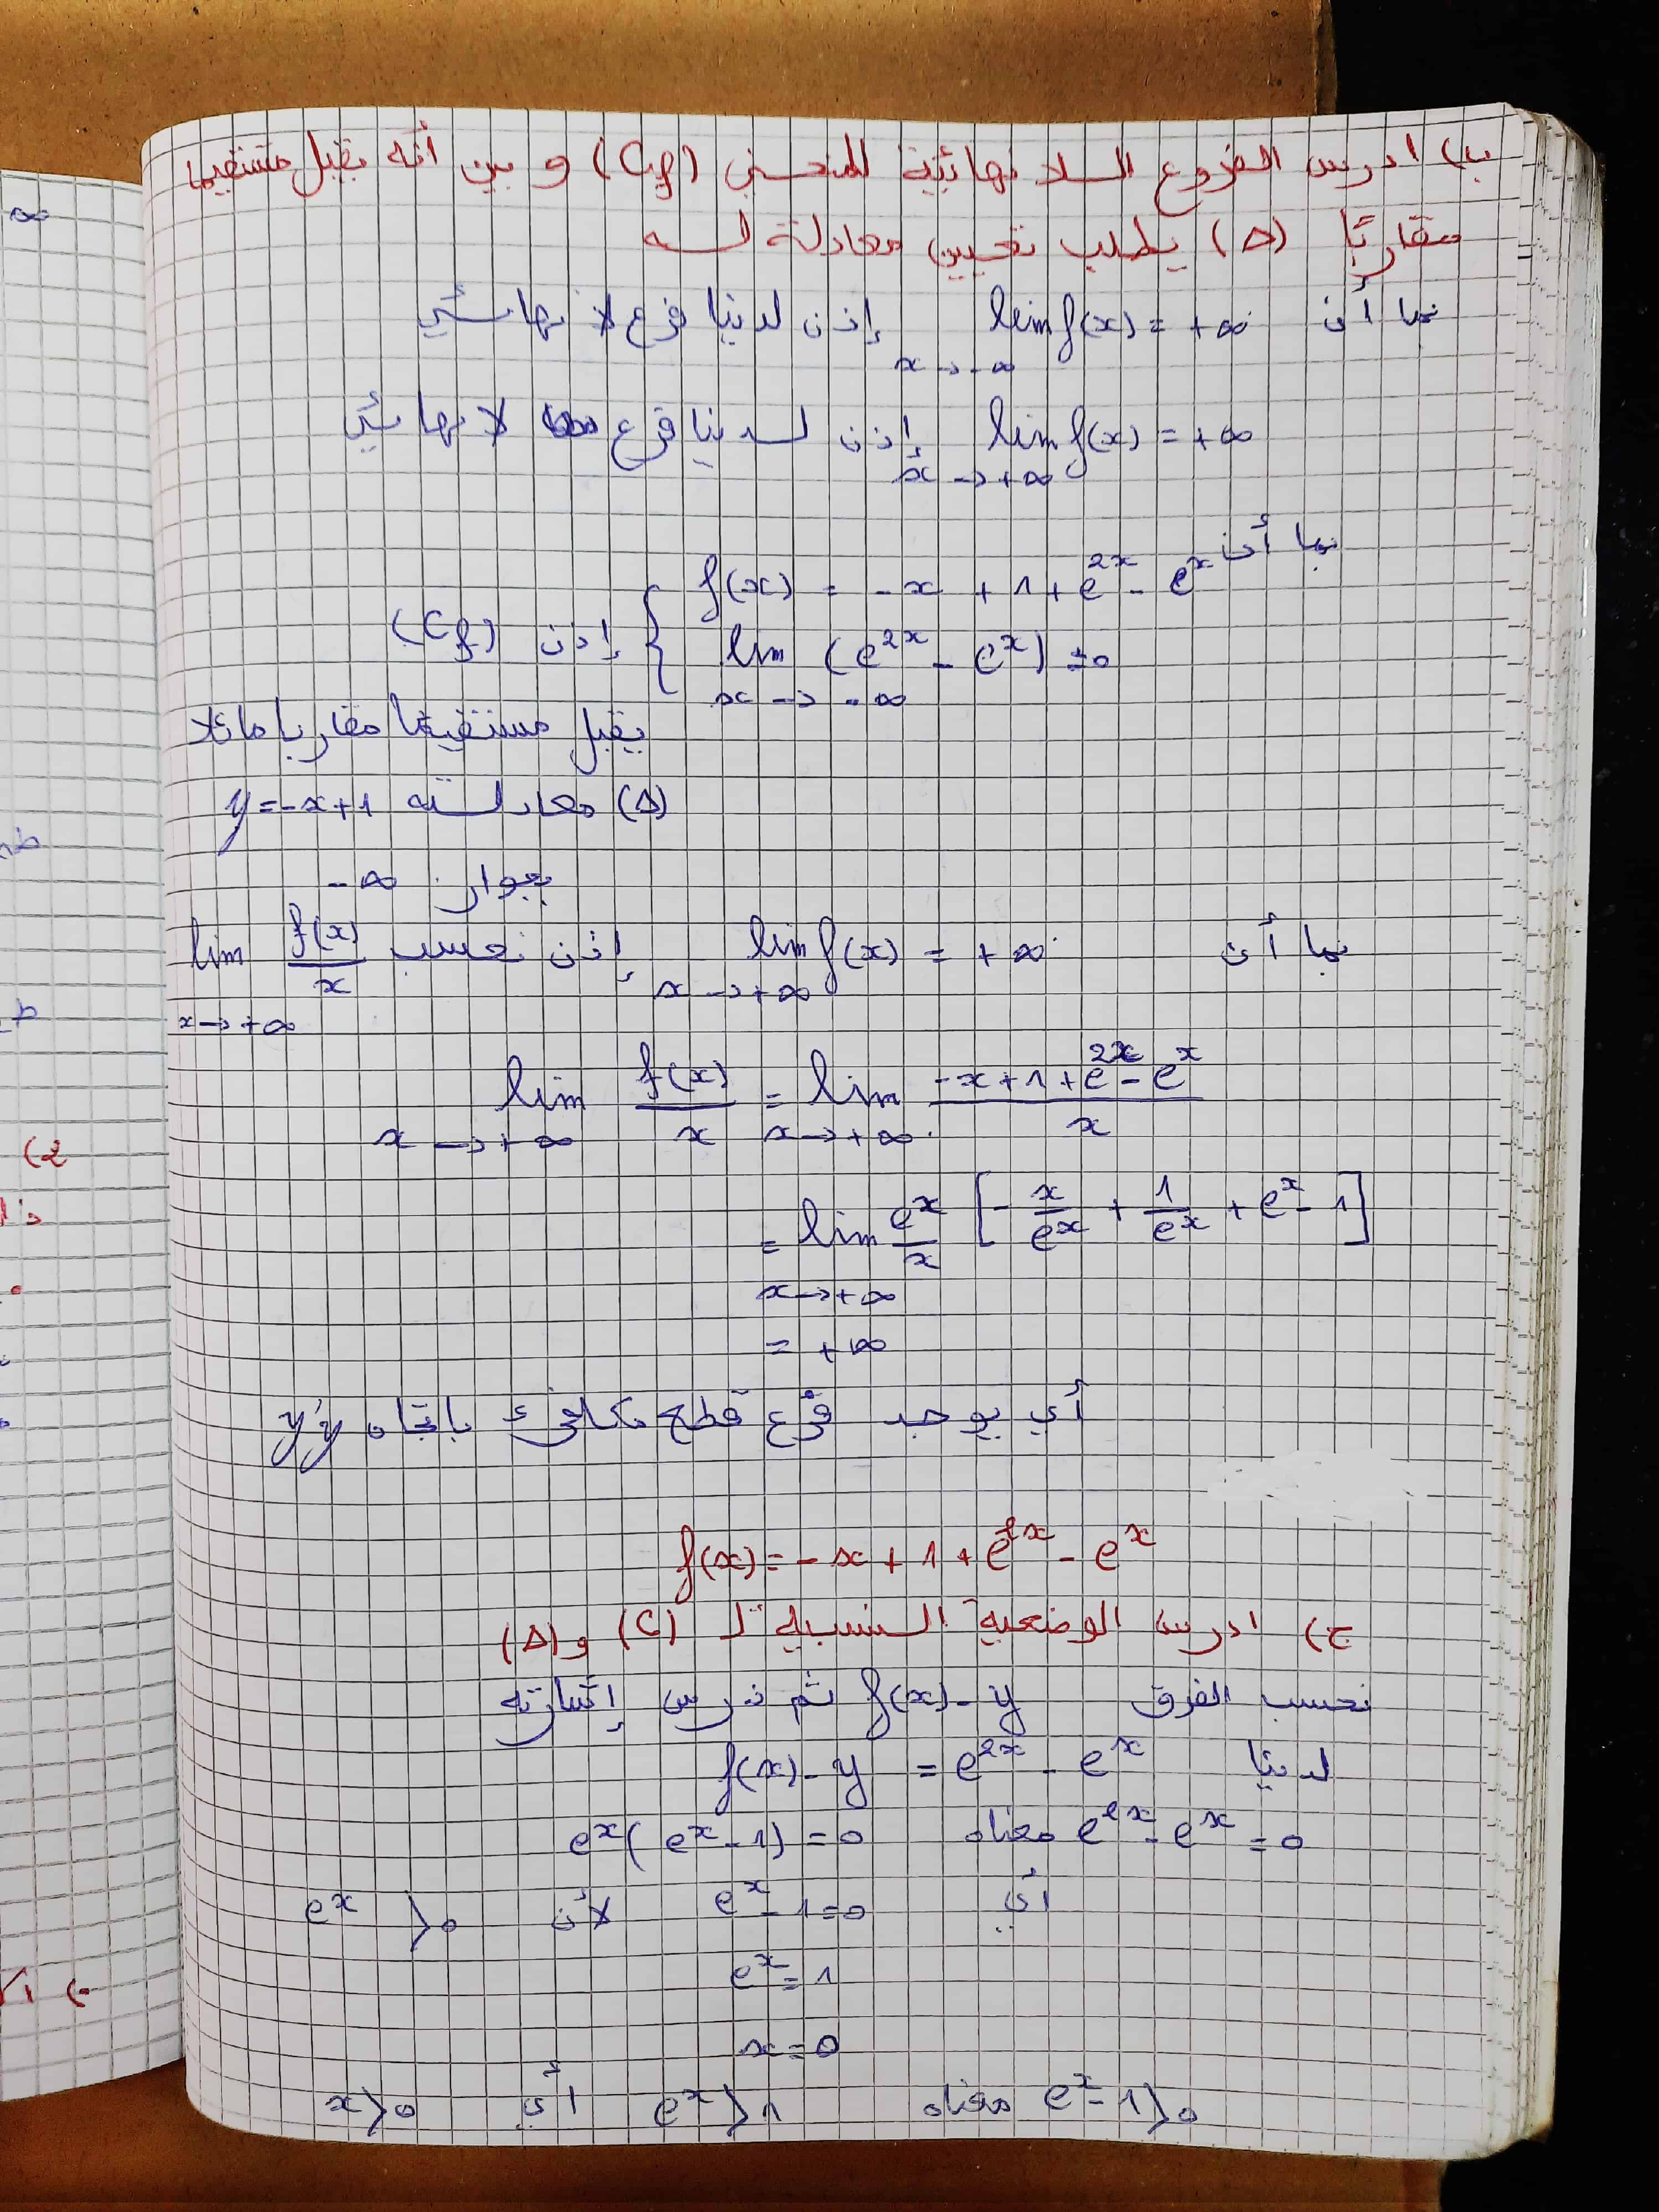 ب) ادرس الفروع اللانهائية للمنحني (Cf) و بين أنه يقبل مستقيما
مقاربًا (Δ) يطلب تعيين معادلة له
بما أن lim f(x) = +∞ إذن لدينا فرع لا نهائي
x → -∞
lim f(x) = +∞ إذن لدينا فرع لا نهائي
x → +∞
بما أن f(x) = -x + 1 + e^{2x} - e^x
lim (e^{2x} - e^x) = 0 إذن (Cf)
x → -∞
يقبل مستقيما مقاربا مائلا
(Δ) معادلته y = -x + 1
بجوار -∞
بما أن lim f(x) = +∞ إذن نحسب lim f(x)/x
x → +∞ x → +∞
lim f(x)/x = lim (-x + 1 + e^{2x} - e^x)/x
x → +∞ x → +∞
= lim e^x/x [-x/e^x + 1/e^x + e^x - 1]
x → +∞
= +∞
أي يوجد فرع قطع مكافئ باتجاه y'y
f(x) = -x + 1 + e^{2x} - e^x
ج) ادرس الوضعية النسبية لـ (C) و (Δ)
نحسب الفرق f(x) - y ثم ندرس إشارته
لدينا f(x) - y = e^{2x} - e^x
e^{2x} - e^x = 0 معناه e^x(e^x - 1) = 0
أي e^x - 1 = 0 لأن e^x > 0
e^x = 1
x = 0
e^x - 1 > 0 معناه e^x > 1 أي x > 0
∞
2)